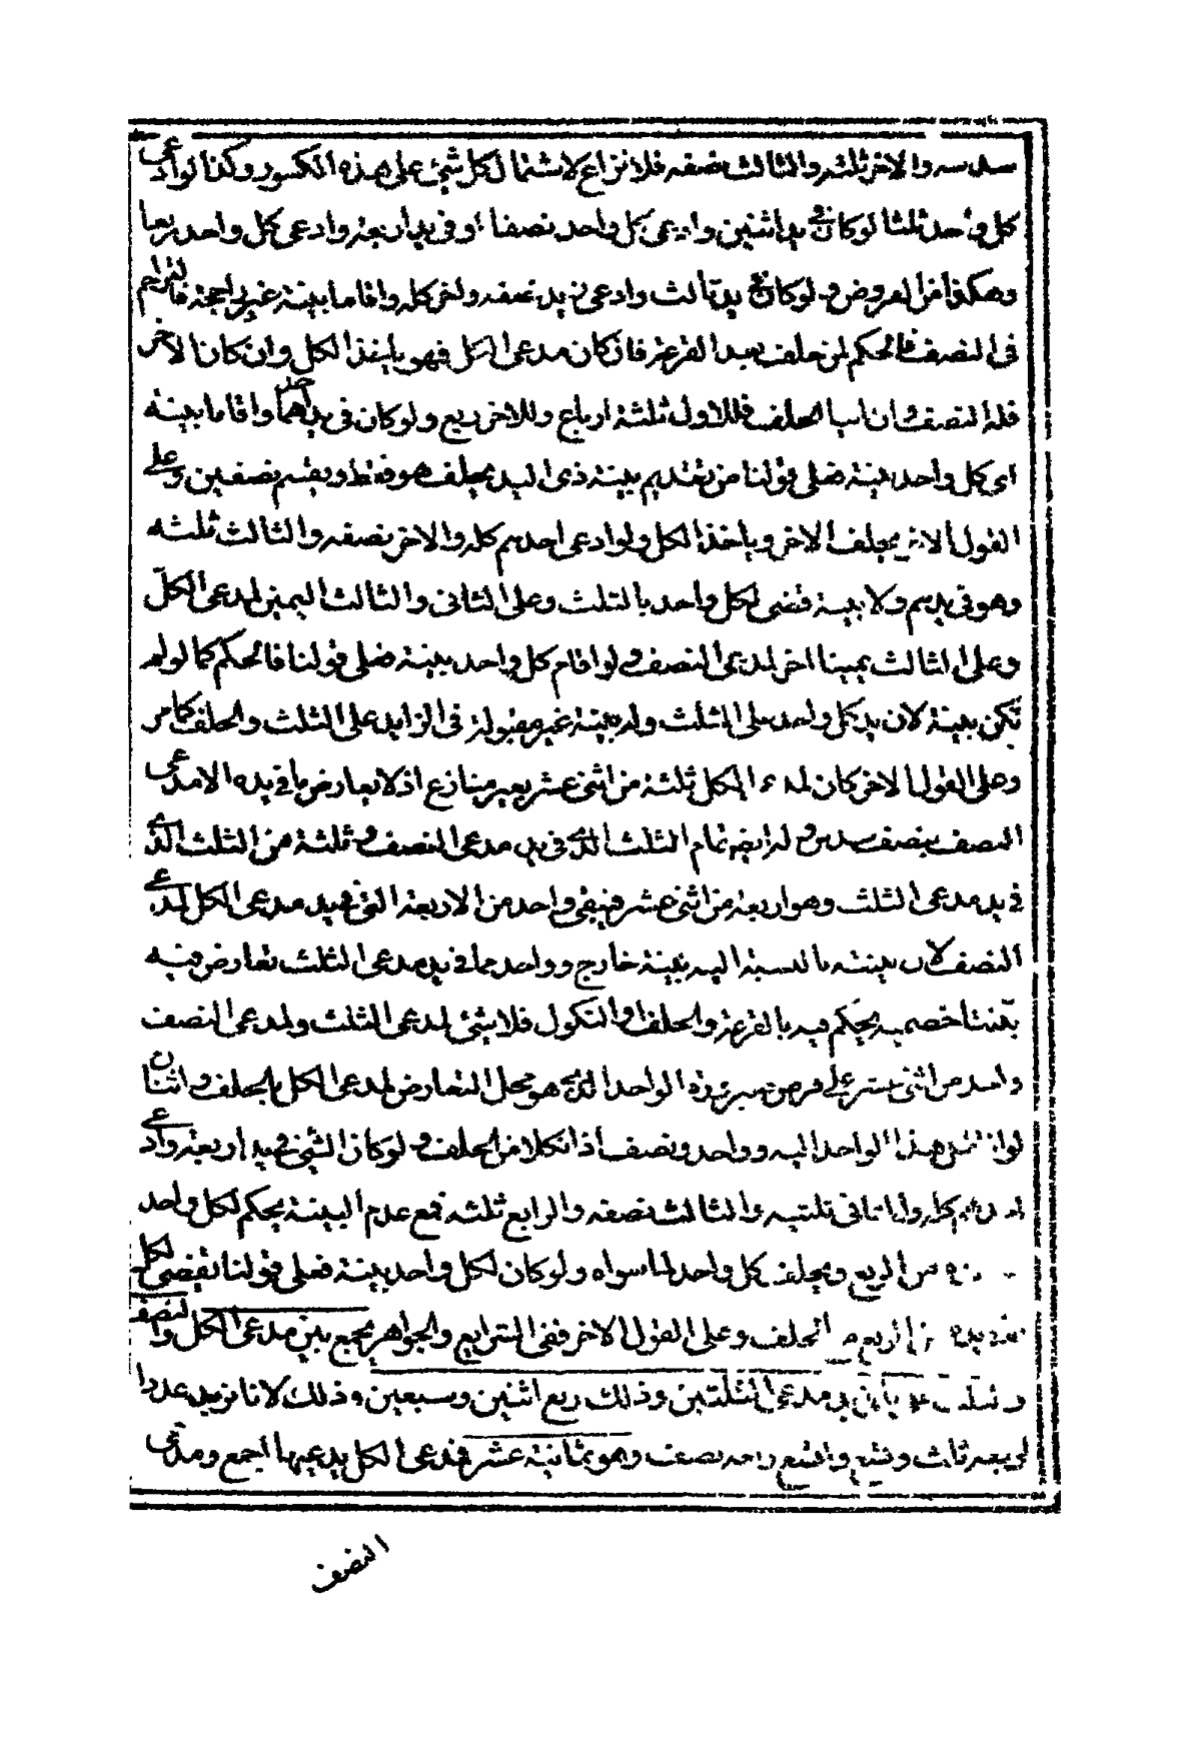 سدسه والاخر ثلثه والثالث نصفه فلا نزاع لاشتمال كل شئ على هذه الكسور وكذا لو ادعى
كل واحد ثلثا لو كان في يد اثنين وادعى كل واحد نصفا او في يد اربعة وادعى كل واحد ربعا
وهكذا من الفروض ولو كان في يد ثالث وادعى زيد نصفه ولخر كله واقاما بينة غير راجحة فالتزاحم
في النصف فالحكم لمن حلف بعد القرعة فان كان مدعى الكل فهو ياخذ الكل وان كان الاخر
فله النصف وان ابيا الحلف فللاول ثلثة ارباع وللاخر ربع ولو كان في يدهما واقاما بينة
اى كل واحد بينة فعلى قولنا من تقديم بينة ذى اليد يحلف هو فقط ويقسم نصفين وعلى
القول الاخر يحلف الاخر وياخذ الكل ولو ادعى احدهم كله والاخر نصفه والثالث ثلثه
وهو في يدهم ولا بينة قضى لكل واحد بالثلث وعلى الثانى والثالث اليمين لمدعى الكل
وعلى الثالث يمينا اخر لمدعى النصف ولو اقام كل واحد بينة فعلى قولنا فالحكم كما لو لم
تكن بينة لان يد كل واحد على الثلث وله بينة غير مقبولة في الزايد على الثلث والحلف كما مر
وعلى القول الاخر كان لمدعى الكل ثلثة من اثنى عشر بغير منازع اذ لا يعارض ما في يده الا مدعى
النصف بنصف سدس وله ايضا تمام الثلث الذى في يد مدعى النصف وثلثة من الثلث الذى
في يد مدعى الثلث وهو اربعة من اثنى عشر فيبقى واحد من الاربعة التى في يد مدعى الكل لمدعى
النصف لان بينته بالنسبة اليه بينة خارج وواحد مما في يد مدعى الثلث تعارض فيه
بينتا خصميه يحكم فيه بالقرعة والحلف او النكول فلا شئ لمدعى الثلث ولمدعى النصف
واحد من اثنى عشر على فرض الواحد الذى هو محل التعارض لمدعى الكل بالحلف واثنان
لو هذا الواحد اليه وواحد ونصف اذا نكلا من الحلف ولو كان الشئ في يد اربعة وادعى
كله والثانى ثلثيه والثالث نصفه والرابع ثلثه فمع عدم البينة يحكم لكل واحد
من الربع ويحلف كل واحد لما سواه ولو كان لكل واحد بينة فعلى قولنا نقضى لكل
الحلف وعلى القول الاخر ففى الشرايع والجواهر يجمع بين مدعى الكل والنصف
يد مدعى الثلثين وذلك ربع اثنين وسبعين وذلك لانا نريد عددا
لربعه ثلث وتسع وللتسع نصف وهو ثمانية عشر فمدعى الكل يدعيها اجمع ومدعى
النصف